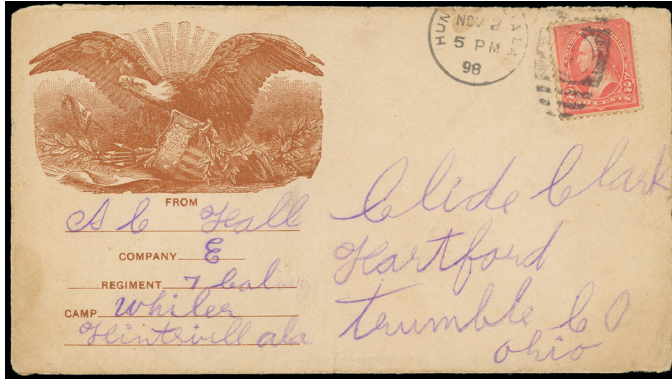 HUN ALA
NOV 2
5 PM
98
FROM
A C Hall
COMPANY E
REGIMENT 7 Calvry
CAMP Whiler
Huntsvill ala
Clide Clark
Hartford
Trumble CO
Ohio